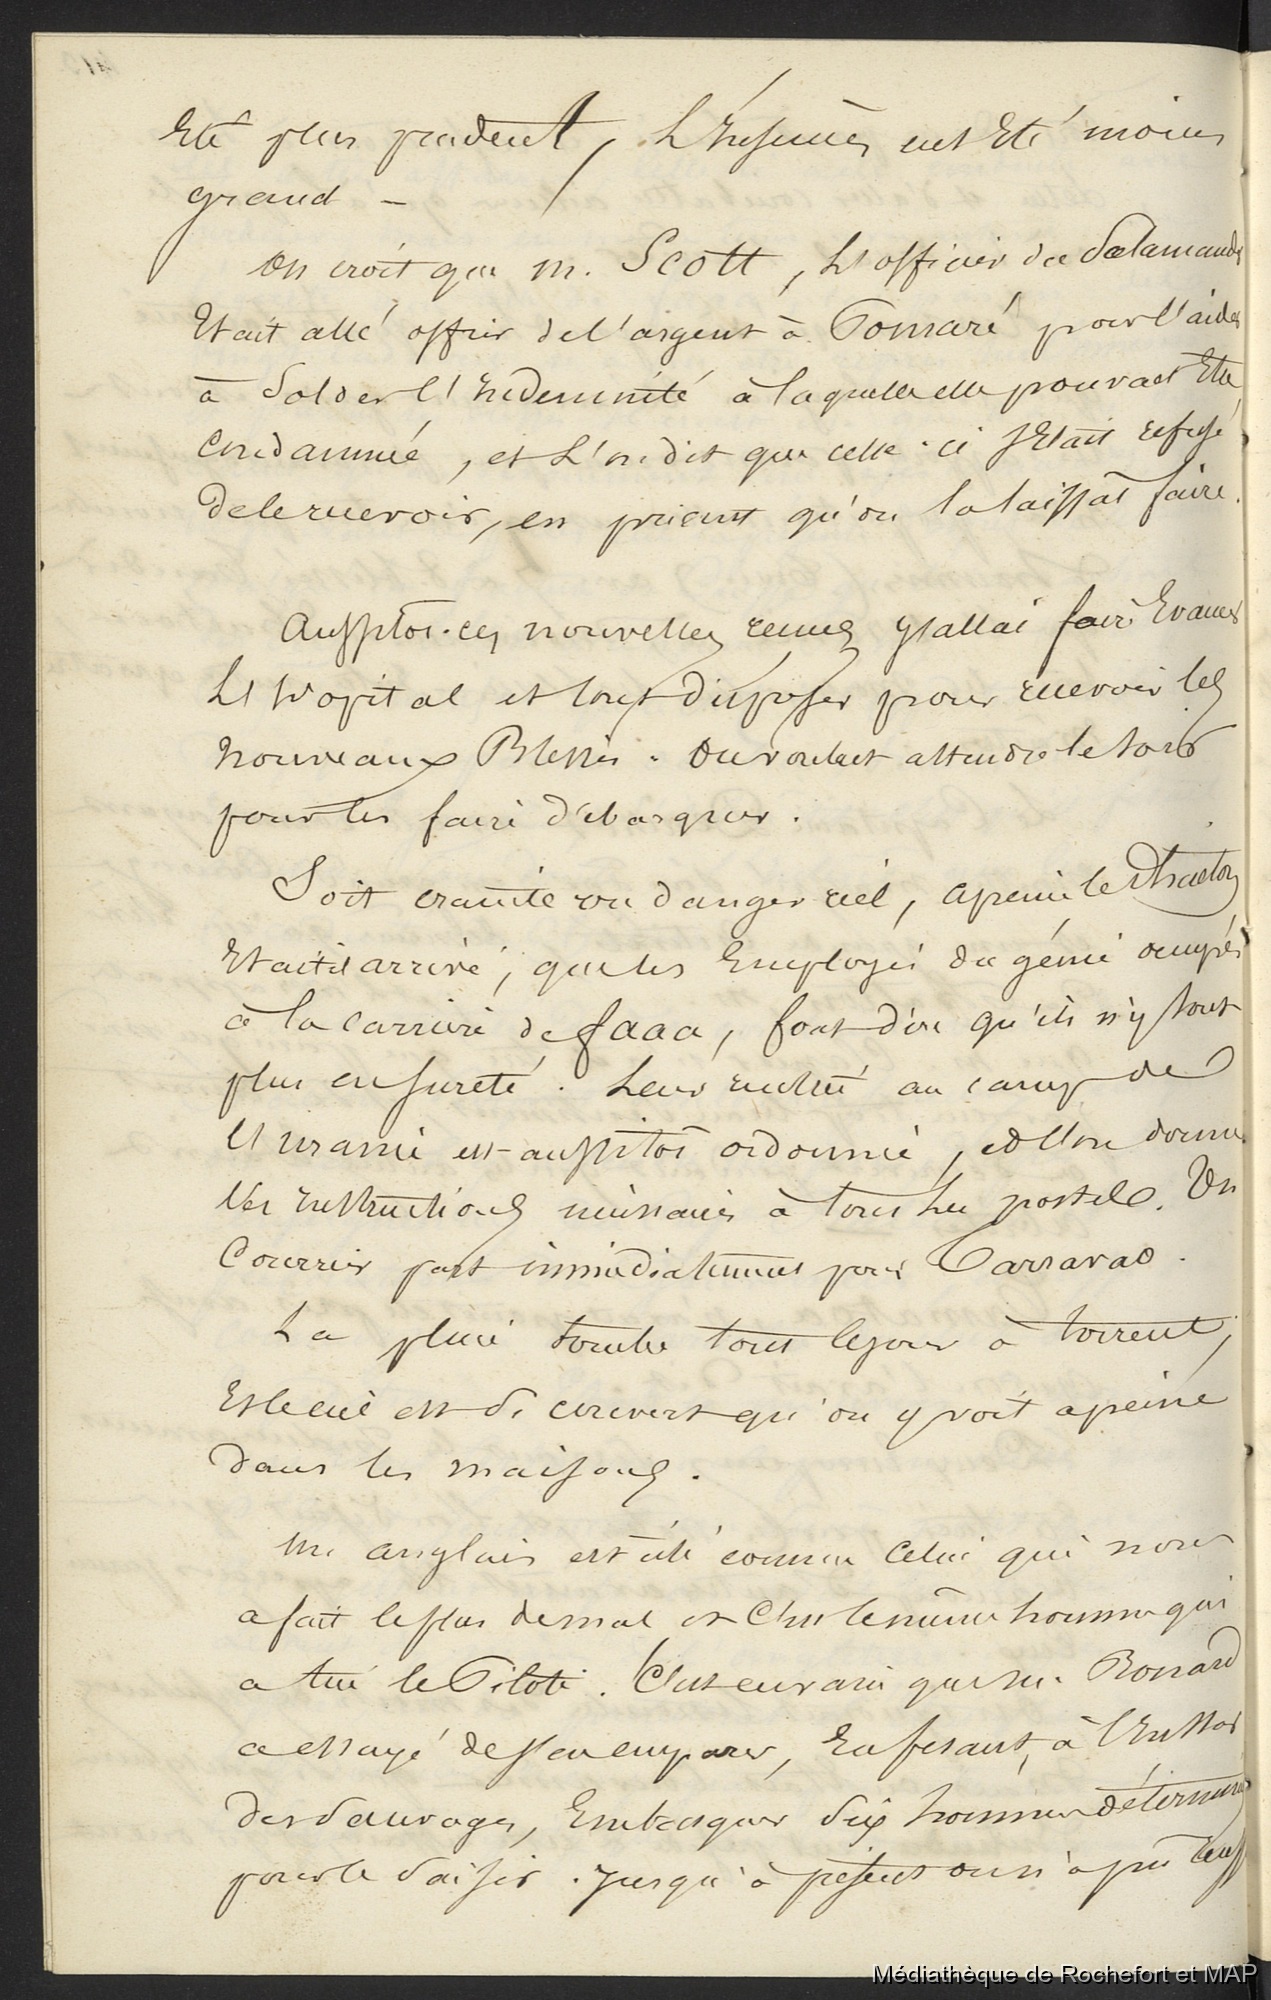 Eté plus prudent, L'insuccès eut Eté moins
grand –
On croit que M. Scott, L'officier du Salamandr
Etait allé offrir de l'argent à Pomaré pour l'aider
à Solder l'indemnité à laquelle elle pouvait Etre
Condamnée, et L'on dit que celle-ci s'Etait refusé
de le recevoir, en priant qu'on la laissât faire.
Aussitôt ces nouvelles reçues j'allai faire Evacuer
L'hopital et tout disposer pour recevoir les
nouveaux Blessés. On voulut attendre le soir
pour les faire débarquer.
Soit crainte ou danger réel, a peine le Phaeton
Etait il arrivé, que les Employés du génie occupés
à la carrière de faaa, font dire qu'ils n'y sont
plus en sureté. Leur rentrée au camp de
l'uranie est aussitôt ordonnée, et l'on donne
les instructions nécessaires à tous les postes. Un
Courrier part immédiatement pour Taravao.
La pluie tombe tout le jour à torrent,
Et le ciel est si couvert qu'on y voit a peine
dans les maisons.
Un anglais est cité comme Celui qui nous
a fait le plus de mal et C'est le même homme qui
a tué le Pilote. C'est en vain que M. Bonard
a essayé de s'en emparer, En fesant, à l'instar
des Sauvages, Embarquer dix hommes déterminés
pour le Saisir. Jusqu'à présent on n'a pu
Médiathèque de Rochefort et MAP